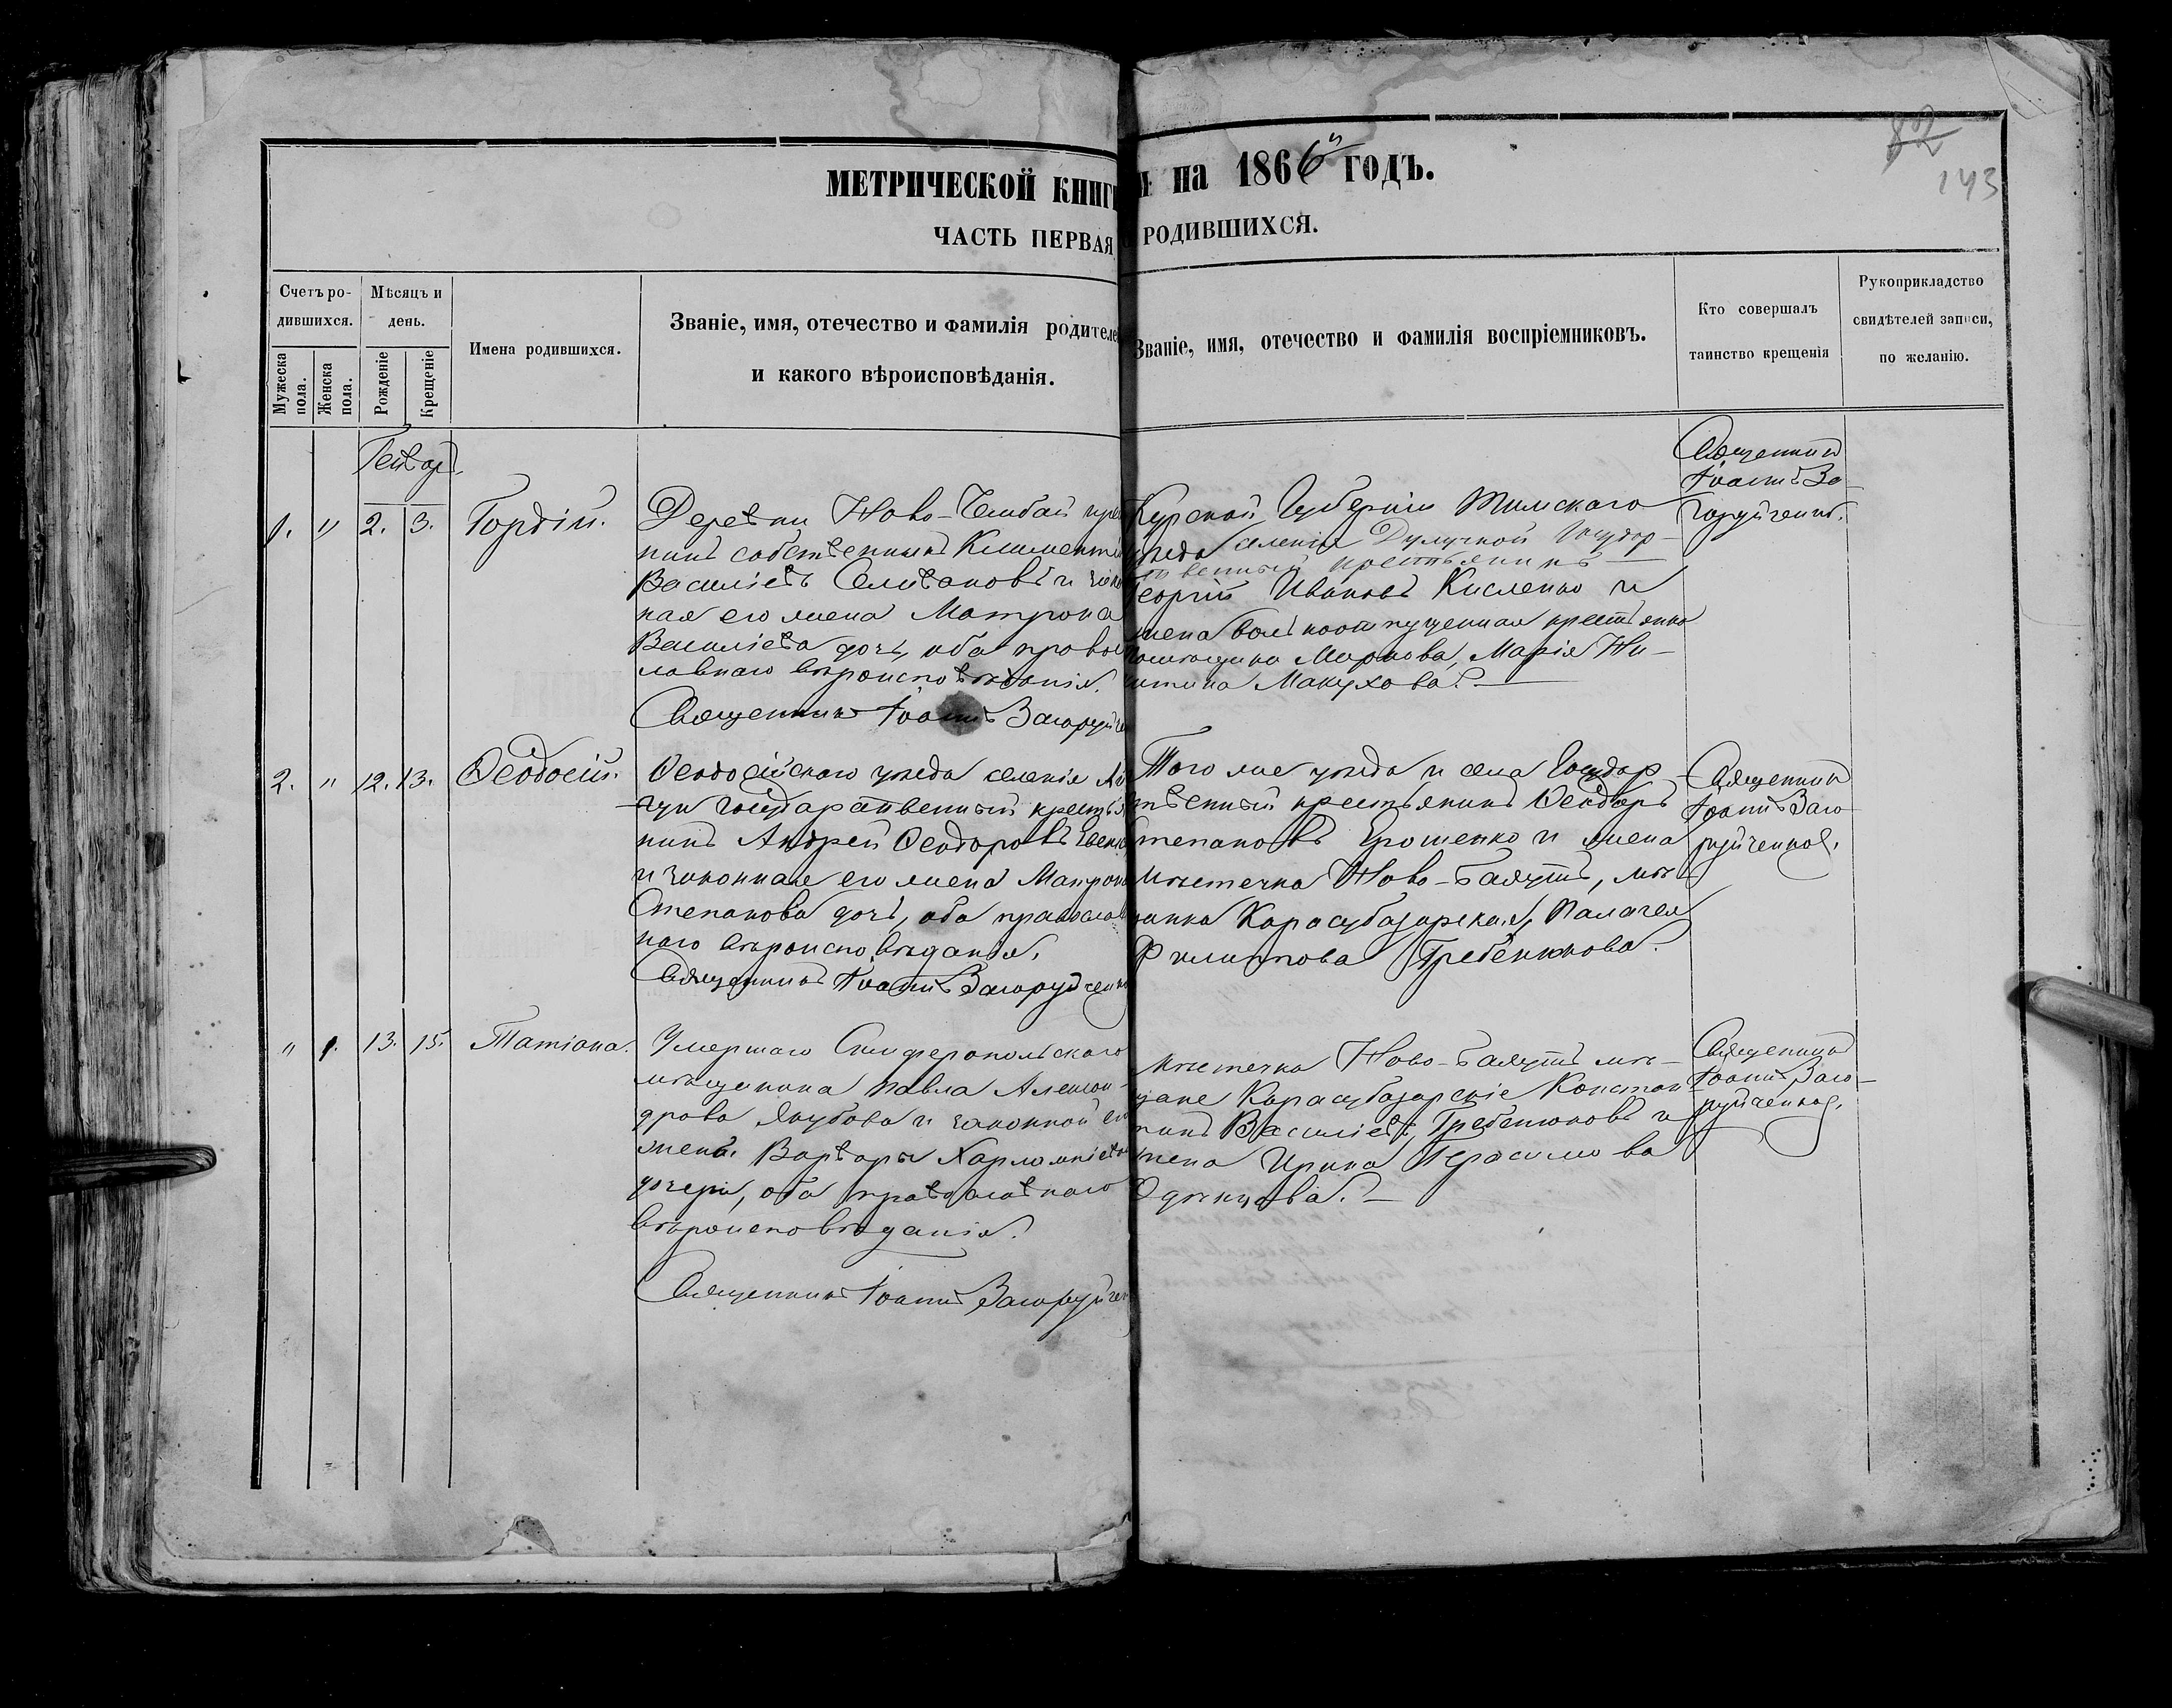 82
143
МЕТРИЧЕСКОЙ КНИГИ на 1866й ГОДЪ.
ЧАСТЬ ПЕРВАЯ РОДИВШИХСЯ.
Счетъ ро-
дившихся.
Мѣсяцъ и
день.
Мужеска
пола.
Женска
пола.
Рожденіе
Крещеніе
Имена родившихся.
Званіе, имя, отечество и фамилія родителе
и какого вѣроисповѣданія.
Званіе, имя, отечество и фамилія воспріемниковъ.
Кто совершалъ
таинство крещенія
Рукоприкладство
свидѣтелей записи,
по желанію.
1. " 2. 3. Гордій.
Деревни Ново-
нинъ собственникъ Климентій
Василіевъ Селивановъ и закон
ная его жена Матрона
Василіева дочь, оба право
славнаго вѣроисповѣданія.
Священникъ Іоаннъ Загоруйче
Курской Губерніи Тимскаго
уѣзда селенія Государ-
ственный крестьянинъ
Георгій Ивановъ Кисленко и
жена вольноотпущенная крестьянка
помѣщика Маркова, Марія Ни-
китина Макухова.
Священникъ
Іоаннъ За-
горуйченко.
2. " 12. 13. Ѳеодосій.
Ѳеодосійскаго уѣзда селенія
Государственный крестья
нинъ Андрей Ѳеодоровъ
и законная его жена Матрона
Степанова дочь, оба православ
наго вѣроисповѣданія.
Священникъ Іоаннъ Загоруйченко
Того же уѣзда и села Государ-
ственный крестьянинъ Ѳеодоръ
Степановъ Ерошенко и жена
Мѣстечка Ново-Баяутъ, мѣ-
щанка Карасубазарская, Палагея
Филиппова Гребенюкова.
Священникъ
Іоаннъ Заго-
руйченко.
" 1. 13. 15. Татіана.
Умершаго Симферопольскаго
мѣщанина Павла Алексан-
дрова Якубова и законной его
жены Варвары Харлампіевой
дочери, оба православнаго
вѣроисповѣданія.
Священникъ Іоаннъ Загоруйчен
Мѣстечка Ново-Баяутъ мѣ-
щане Карасубазарскіе Констан-
тинъ Василіевъ Гребенюковъ и
жена Ирина Герасимова
Одинцова.
Священникъ
Іоаннъ Заго-
руйченко.